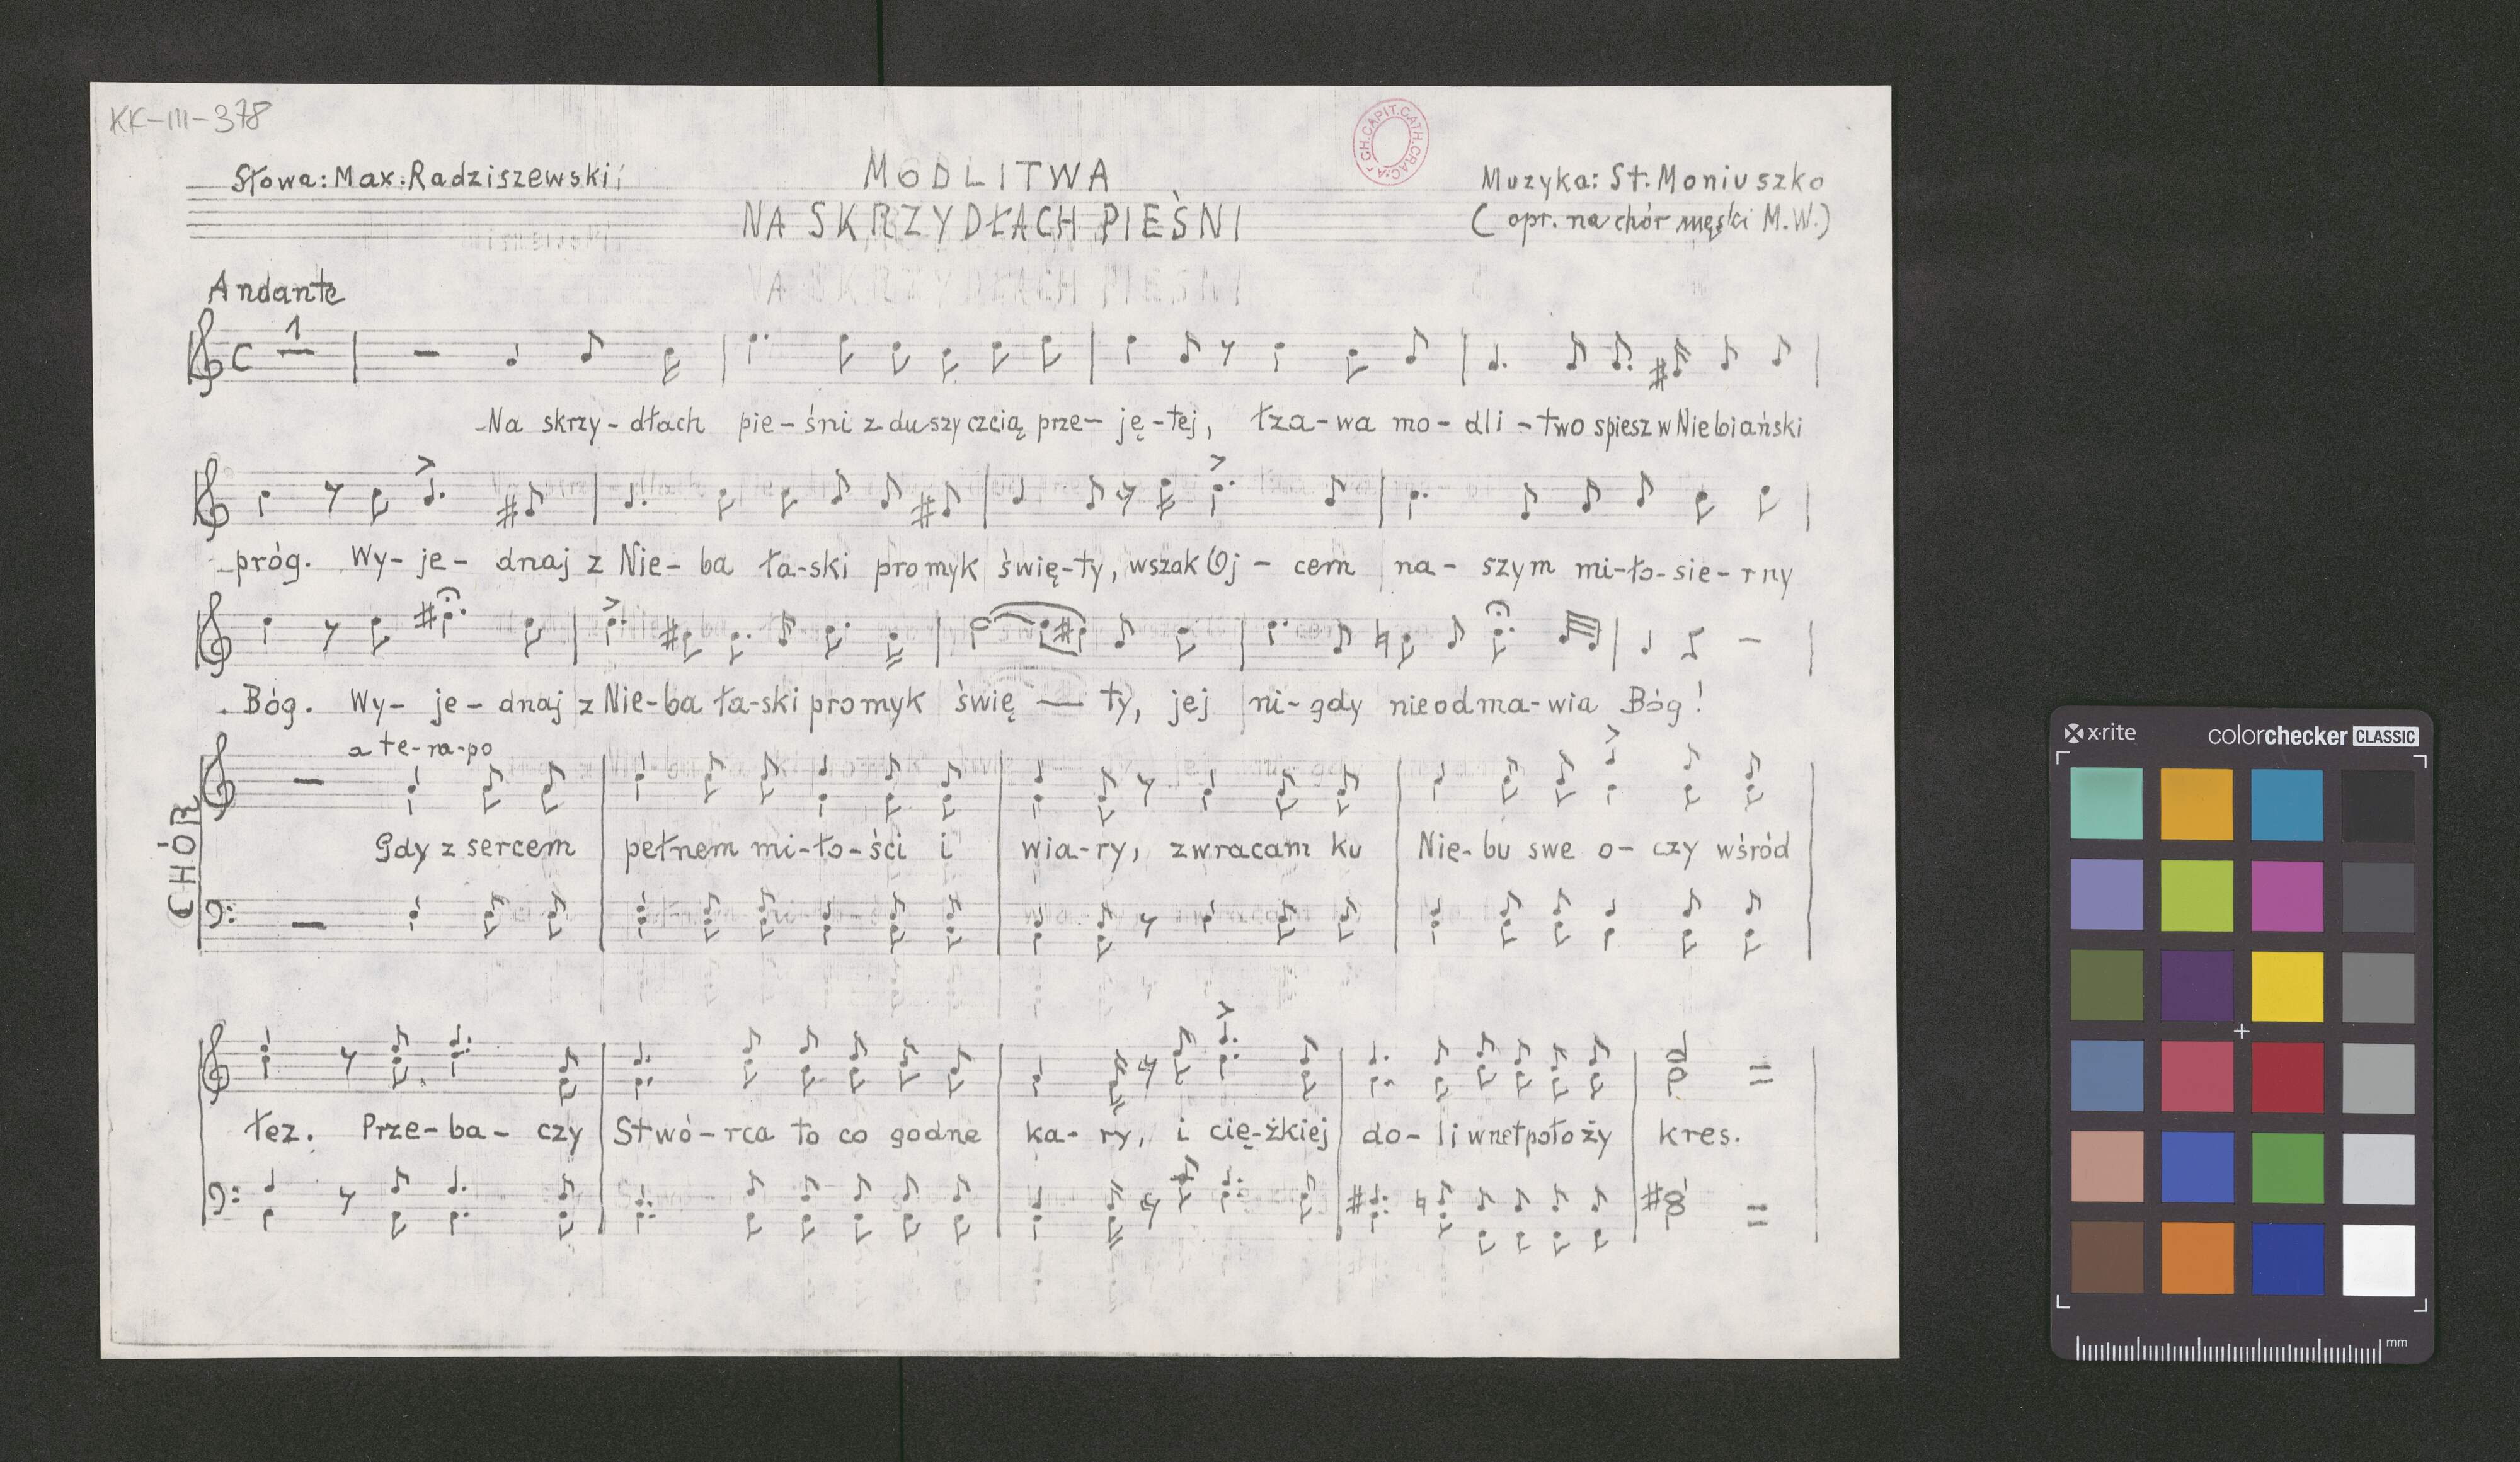 KK-III-378
ARCH.CAPIT.CATH.CRAC.
Słowa: Max. Radziszewski
MODLITWA
NA SKRZYDŁACH PIEŚNI
Muzyka: St. Moniuszko
( opr. na chór męski M.W.)
Andante
1
Na skrzy-dłach pie-śni z duszy czcią prze-ję-tej, łza-wa mo-dli-two spiesz w Niebiański
próg. Wy-je-dnaj z Nie-ba ła-ski promyk świę-ty, wszak Oj-cem na-szym mi-ło-sie-rny
Bóg. Wy-je-dnaj z Nie-ba ła-ski promyk świę—ty, jej ni-gdy nie odma-wia Bóg!
a te-ra-po
CHÓR
Gdy z sercem pełnem mi-ło-ści i wia-ry, zwracam ku Nie-bu swe o-czy wśród
łez. Prze-ba-czy Stwó-rca to co godne ka-ry, i cię-żkiej do-li wnet położy kres.
x·rite
colorchecker CLASSIC
mm